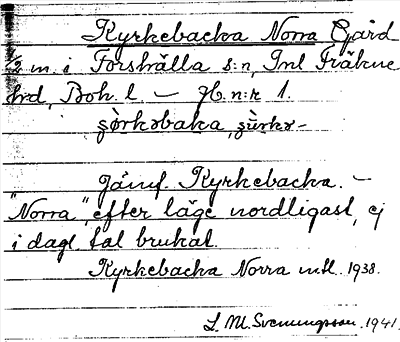 Kyrkebacka Norra Gård
1/2 m. i Forshälla s:n, Inl Fräkne
hrd, Boh. l. — Jb. n:r 1.
Jämf. Kyrkebacka. —
"Norra" efter läge nordligast, ej
i dagl tal brukat.
Kyrkebacka Norra mtl. 1938.
L. M. Svenungsson. 1941.